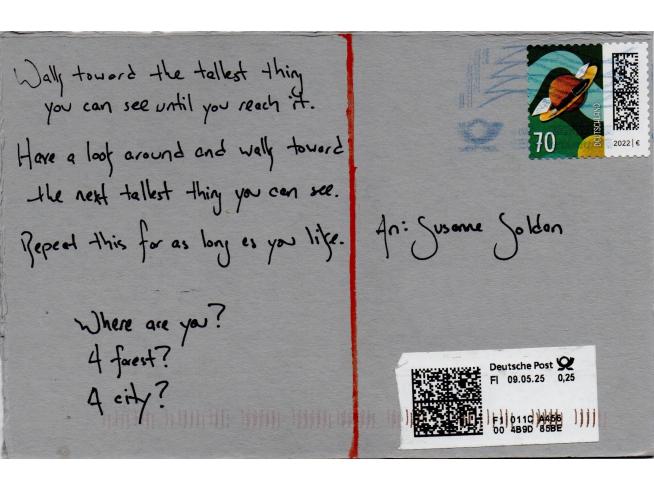 Walk toward the tallest thing
you can see until you reach it.
Have a look around and walk toward
the next tallest thing you can see.
Repeat this for as long as you like.
Where are you?
A forest?
A city?
70
DEUTSCHLAND
2022 | €
An: Susanne Soldan
Deutsche Post
FI 09.05.25 0,25
00 4B9D